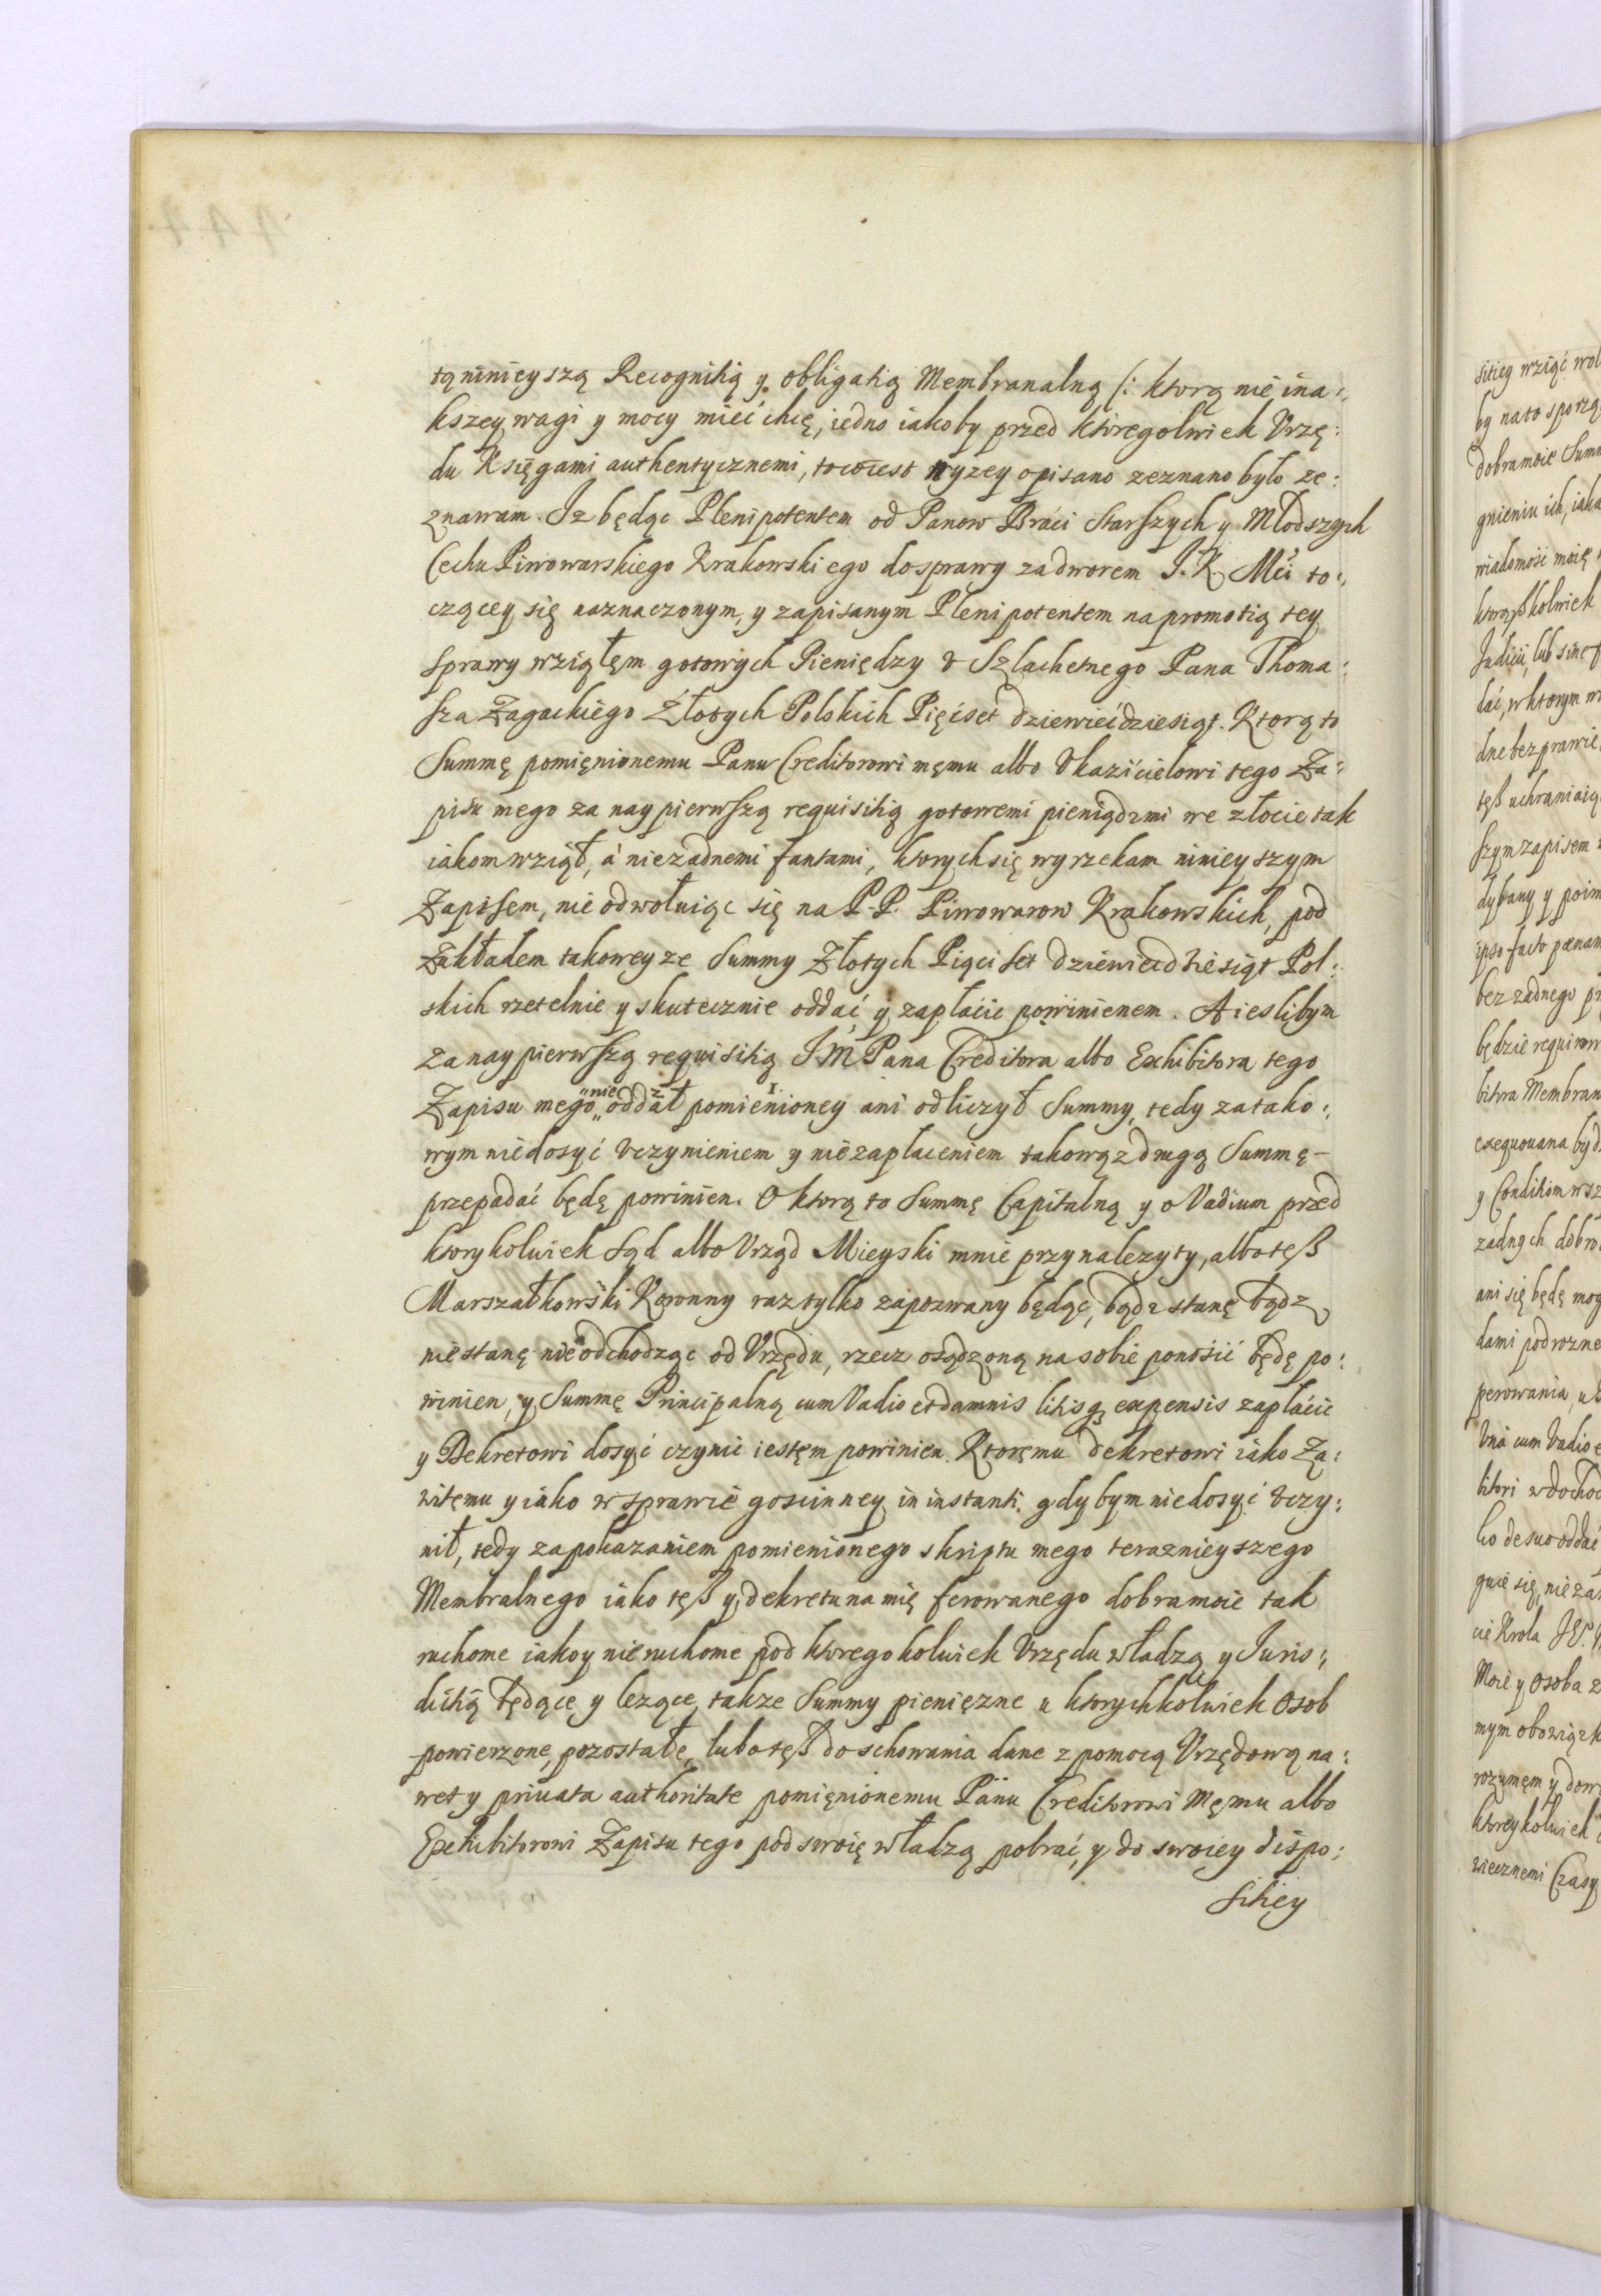 tą ninieyszą Recognitią y obligatią Membranalną (: ktorą nie ina:
kszey wagi y mocy mieć chcę, iedno iakoby przed ktoregolwiek Vrzę:
du Księgami authentycznemi, to co iest wyzey opisano zeznano było ze:
znawam. Iz będąc Plenipotentem od Panow Braci Starszych y Młodszych
Cechu Piwowarskiego Krakowskiego do sprawy za dworem I. K. Mći to:
czącey się naznaczonym, y zapisanym Plenipotentem na promotią tey
sprawy wziąłęm gotowych Pieniędzy v Szlachetnego Pana Thoma:
sza Zagackiego Złotych Polskich Pięćset dziewiećdziesiąt. Ktorą to
Summę pomięnionemu Panu Creditorowi męmu albo Vkazićielowi tego Za:
pisu mego za naypierwszą requisitią gotowemi pieniądzmi we złocie tak
iakom wziął, á niezadnemi fantami, ktorych się wyrzekam ninieyszym
Zapisem, nie odwołuiąc się na P. P. Piwowarow Krakowskich, pod
Zakładem takoweyze Summy Złotych Piąciset dziewiecdziesiąt Pol:
skich rzetelnie y skutecznie oddać y zapłacic powinienem. A ieslibym
za naypierwszą requisitią I M Pana Creditora albo Exhibitora tego
Zapisu mego „nie„ oddał pomienioney ani odliczył Summy, tedy za tako:
wym niedosyć vczynieniem y niezapłaceniem takowąz drugą Summę
przepadać będę powinien. O ktorą to Summę Capitalną y o Vadium przed
ktorykolwiek sąd albo Vrząd Mieyski mnie przynalezyty, albo teß
Marszałkowski Koronny raz tylko zapozwany będąc, bądz stanę bądz
nie stanę nieodchodząc od Vrzędu, rzecz osądzoną na sobie ponosić będę po:
winien, y Summę Principalną cum Vadio et damnis litisq; expensis zapłacic
y Dekretowi dosyć czynic iestęm powinien. Ktoręmu dekretowi iako Za:
witęmu y iako w sprawie goscinney in instanti, gdybym niedosyć vczy:
nił, tedy za pokazaniem pomienionego skriptu mego teraznieyszego
Membralnego iako tęß y dekretu na mię ferowanego dobra moie tak
ruchome iako y nieruchome pod ktoregokolwiek Vrzędu władzą y Iuris:
dictią będące y lezące, takze Summy pieniezne u ktorychkolwiek Osob
powierzone, pozostałe, lubo tęß do schowania dane z pomocą Vrzędową na:
wet y privata authoritate pomięnionemu Panu Creditorowi Męmu albo
Exhibitorowi Zapisu tego pod swoię władzą pobrać, y do swoiey dispo:
sitiey